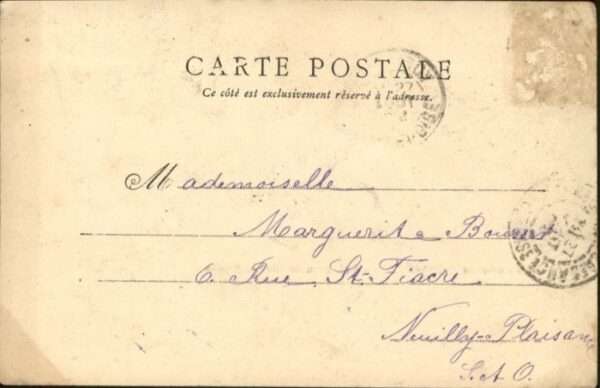 CARTE POSTALE
Ce côté est exclusivement réservé à l'adresse.
Mademoiselle
Marguerite
6. Rue St-Fiacre
Neuilly-Plaisance
S.&O.
27
27